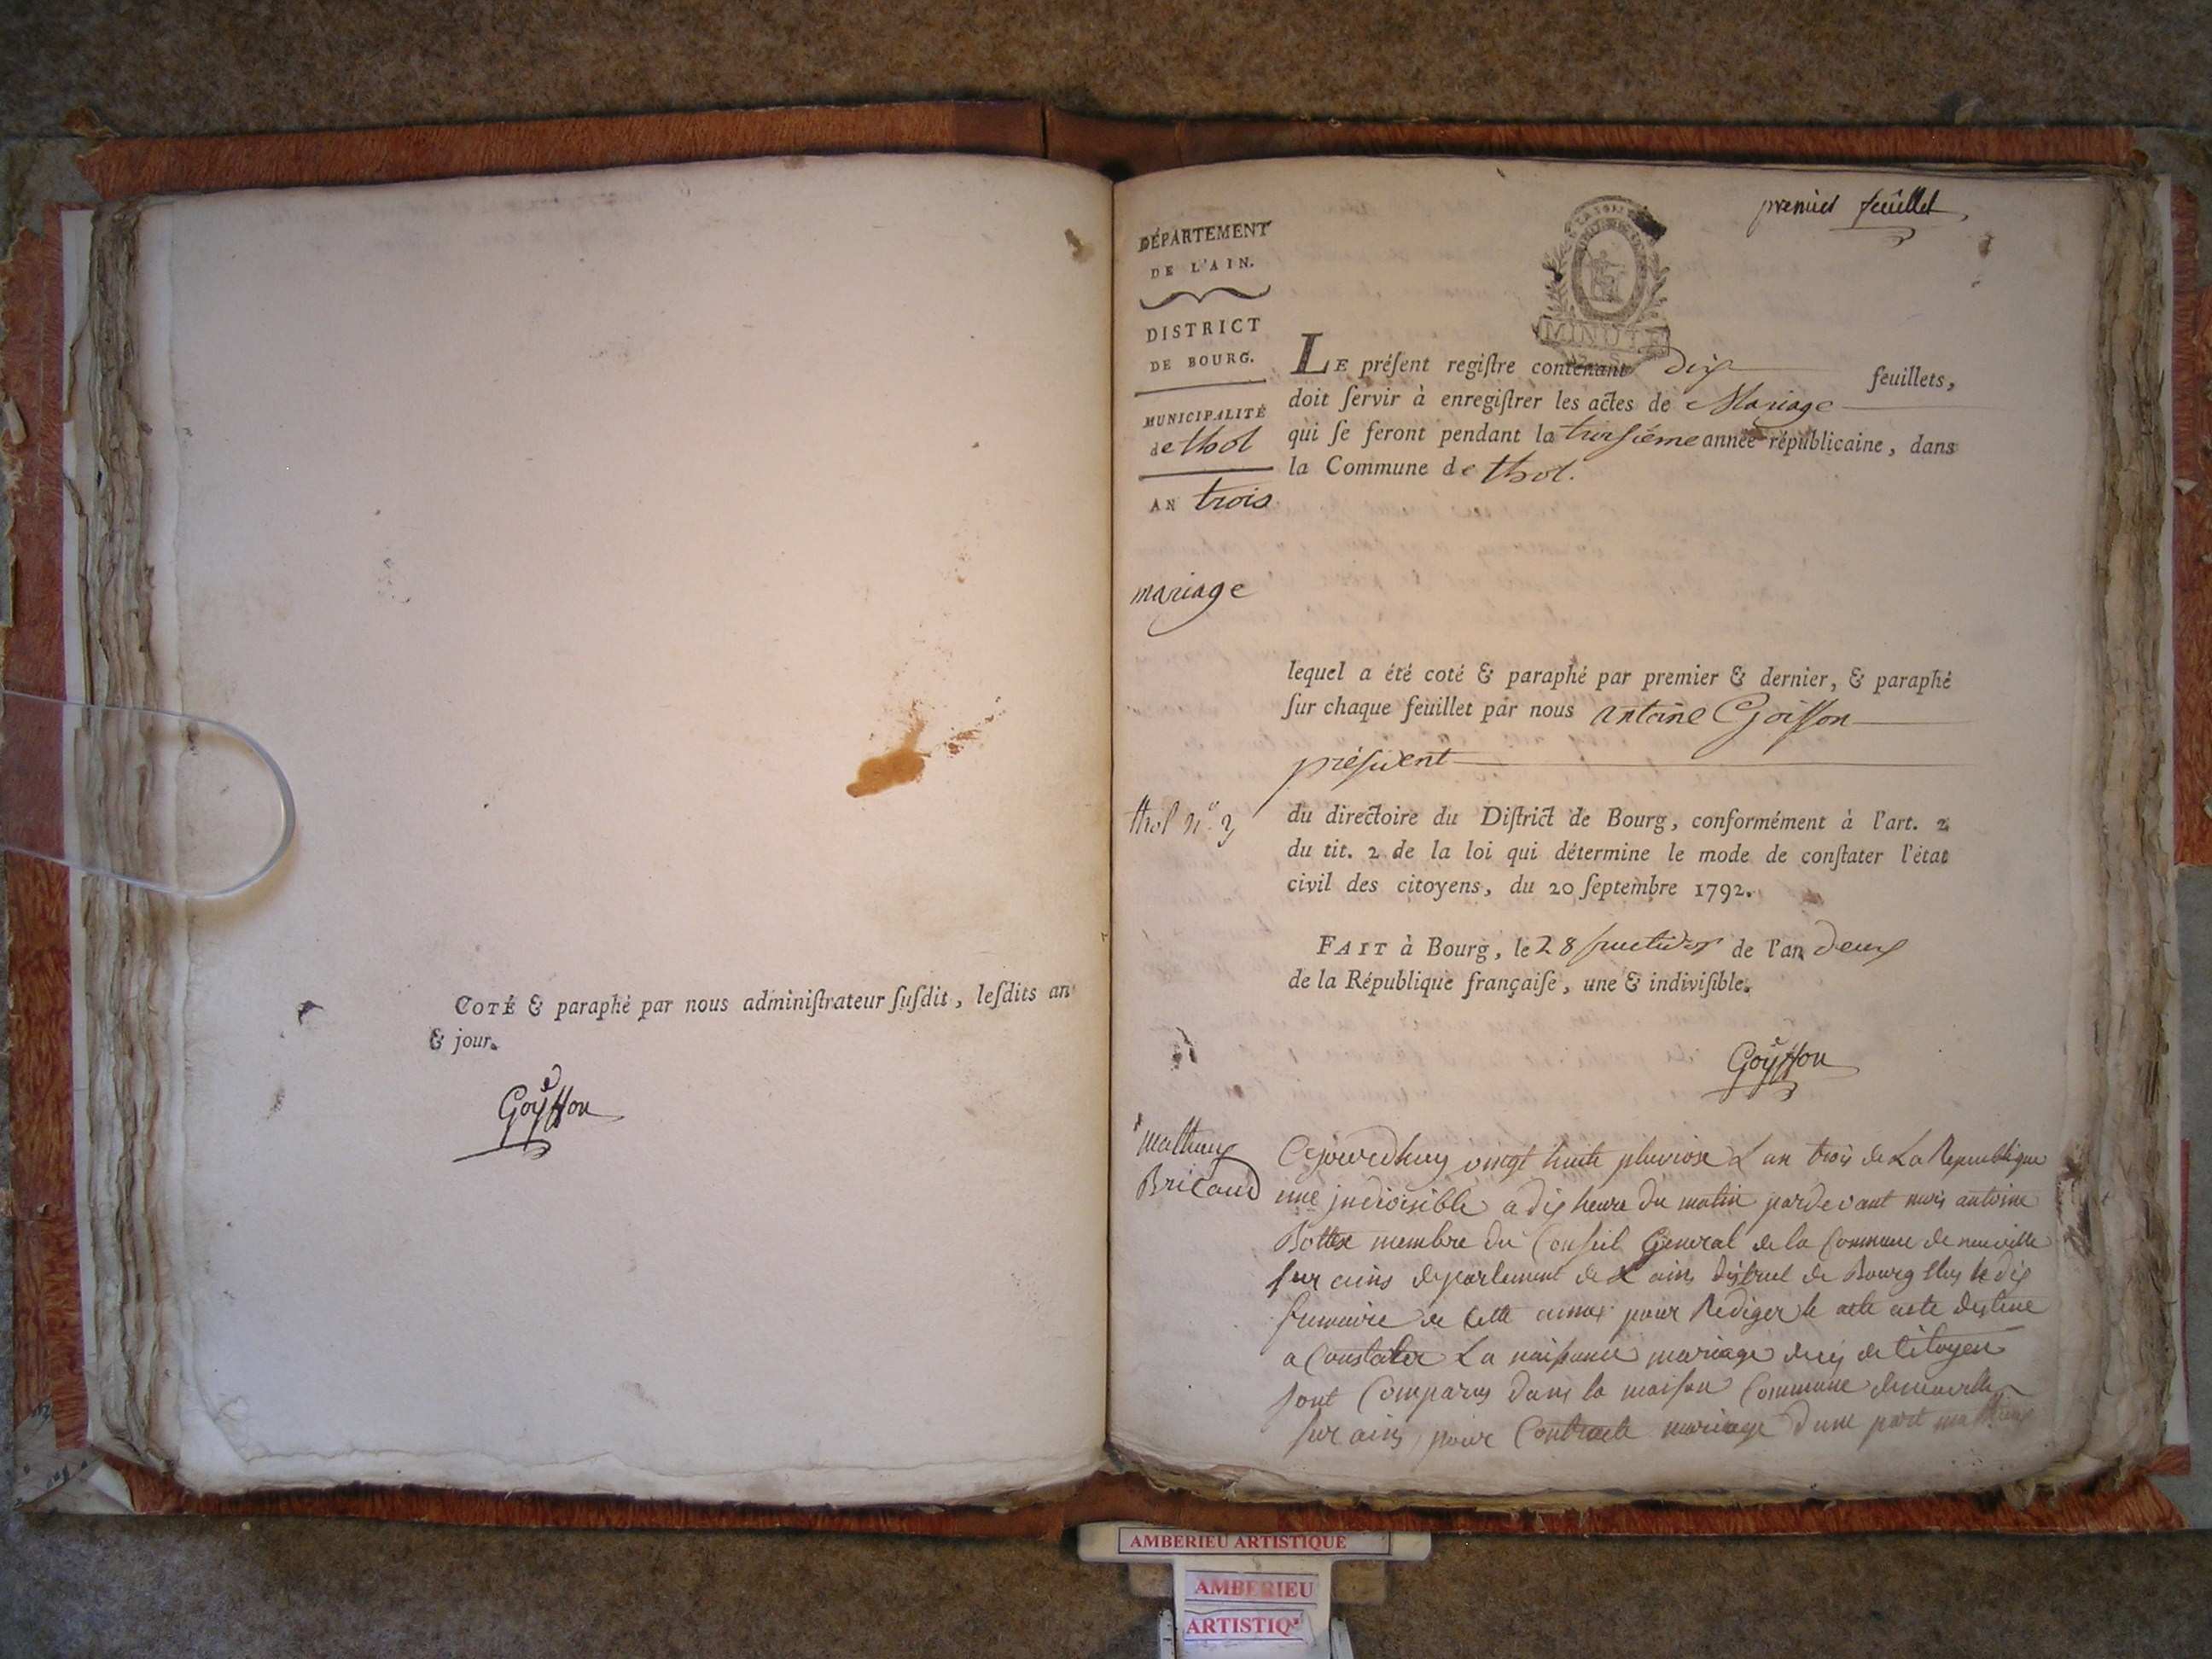 COTÉ & paraphé par nous adminiſtrateur ſuſdit, leſdits an
& jour.
Goyffon
premier feüillet
DÉPARTEMENT
DE L'AIN.
DISTRICT
DE BOURG.
MUNICIPALITÉ
de thol
AN trois
mariage
thol n.º
MINUTE
LE préſent regiſtre contenant dix feuillets,
doit ſervir à enregiſtrer les actes de Mariage
qui ſe feront pendant la troiſiéme année républicaine, dans
la Commune de thol.
lequel a été coté & paraphé par premier & dernier, & paraphé
ſur chaque feuillet par nous antoine Goiffon
préſident
du directoire du Diſtrict de Bourg, conformément à l'art. 2
du tit. 2 de la loi qui détermine le mode de conſtater l'état
civil des citoyens, du 20 ſeptembre 1792.
FAIT à Bourg, le 28 fructidor de l'an deux
de la République françaiſe, une & indiviſible.
Goyffon
Mathieu
Bricaud
Cejourdhuy vingt huite pluviose L an trois de La Republique
une jndivisible a dix heure du matin pardevant mois antoine
Bottex membre du Conseil General de la Commune de neuville
sur ains departement de L ains district de Bourg Elus le dix
frimaire de Cette annee pour Rediger le acte acte destine
a Constater La naissance mariage deces de Citoyen
sont Comparus dans la maison Commune de neuville
sur ains pour Contracte mariage d une part mathieux
AMBERIEU ARTISTIQUE
AMBERIEU
ARTISTIQ